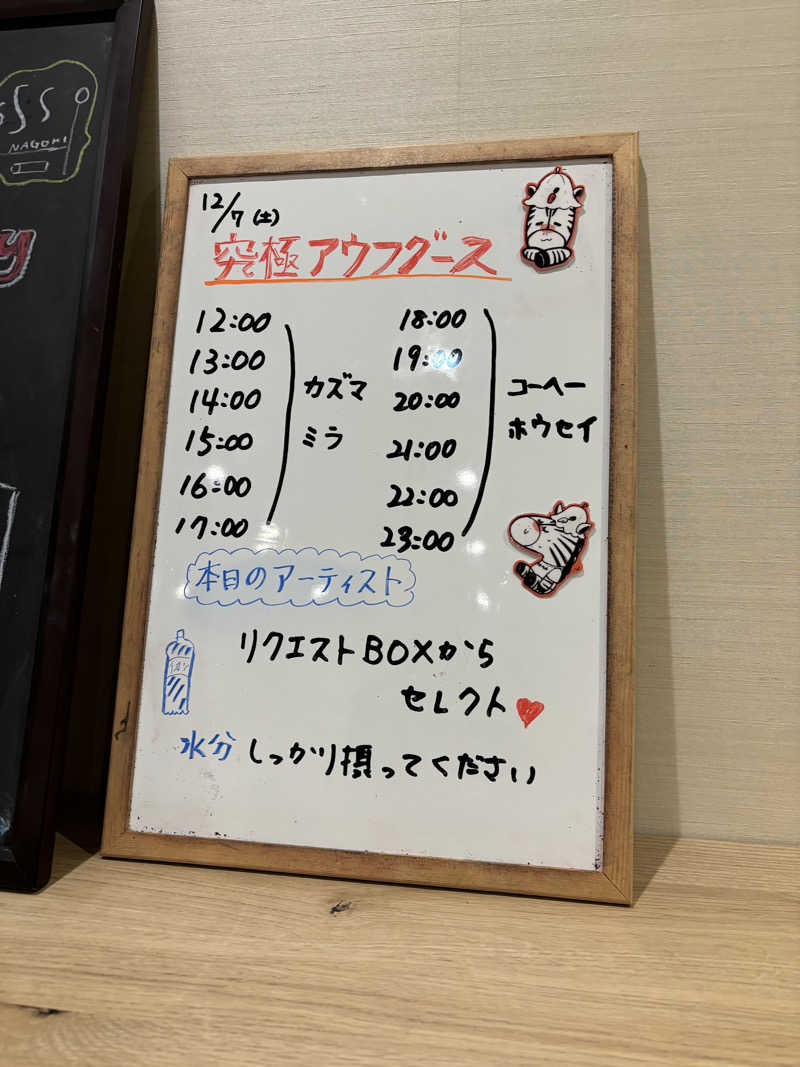 NAGOMI
12/7(土)
究極アウフグース
12:00
13:00
14:00
15:00
16:00
17:00
カズマ
ミラ
18:00
19:00
20:00
21:00
22:00
23:00
コーヘー
ホウセイ
本日のアーティスト
リクエストBOXから
セレクト
水分しっかり摂ってください